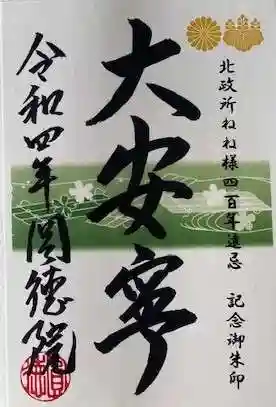 北政所ねね様四百年遠忌　記念御朱印
大安寧
令和四年圓徳院